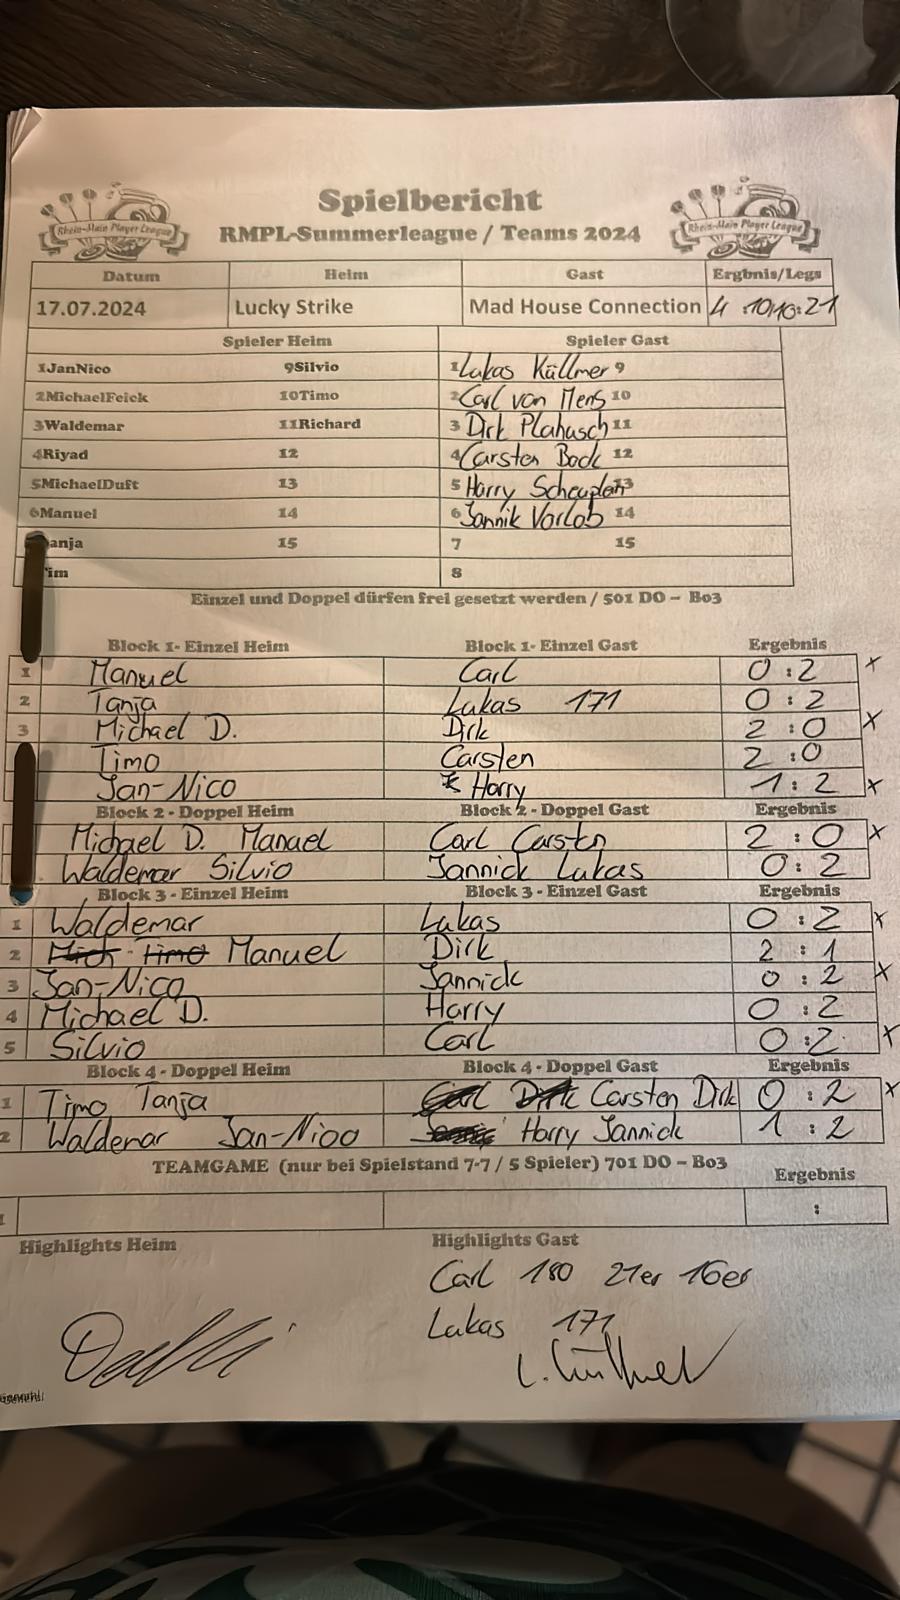 Spielbericht
RMPL-Summerleague / Teams 2024
Rhein-Main Player League
Rhein-Main Player League
Datum Heim Gast Ergbnis/Legs
17.07.2024 Lucky Strike Mad House Connection 4 :10/10:21
Spieler Heim Spieler Gast
1JanNico 9Silvio 1Lukas Küllmer 9
2MichaelFeick 10Timo 2Carl von Mens 10
3Waldemar 11Richard 3 Dirk Plahusch 11
4Riyad 12 4Carsten Bock 12
5MichaelDuft 13 5 Harry 13
6Manuel 14 6Jannik Vorlob 14
anja 15 7 15
im 8
Einzel und Doppel dürfen frei gesetzt werden / 501 DO - Bo3
Block 1- Einzel Heim Block 1- Einzel Gast Ergebnis
1 Manuel Carl 0 :2 x
2 Tanja Lukas 171 0 : 2
3 Michael D. Dirk 2 :0 x
Timo Carsten 2 :0
Jan-Nico Harry 1 : 2 x
Block 2 - Doppel Heim Block 2 - Doppel Gast Ergebnis
Michael D. Manuel Carl Carsten 2 :0 x
Waldemar Silvio Jannick Lukas 0: 2
Block 3 - Einzel Heim Block 3 - Einzel Gast Ergebnis
1 Waldemar Lukas 0 : 2 x
2 Mich Timo Manuel Dirk 2 : 1
3 Jan-Nico Jannick 0 : 2 x
4 Michael D. Harry 0 :2
5 Silvio Carl 0 :2 x
Block 4 - Doppel Heim Block 4 - Doppel Gast Ergebnis
1 Timo Tanja Carl Dirk Carsten Dirk 0 : 2 x
2 Waldemar Jan-Nico Harry Jannick 1 : 2
TEAMGAME (nur bei Spielstand 7-7 / 5 Spieler) 701 DO - Bo3 Ergebnis
1 :
Highlights Heim Highlights Gast
Carl 180 21er 16er
Lukas 171